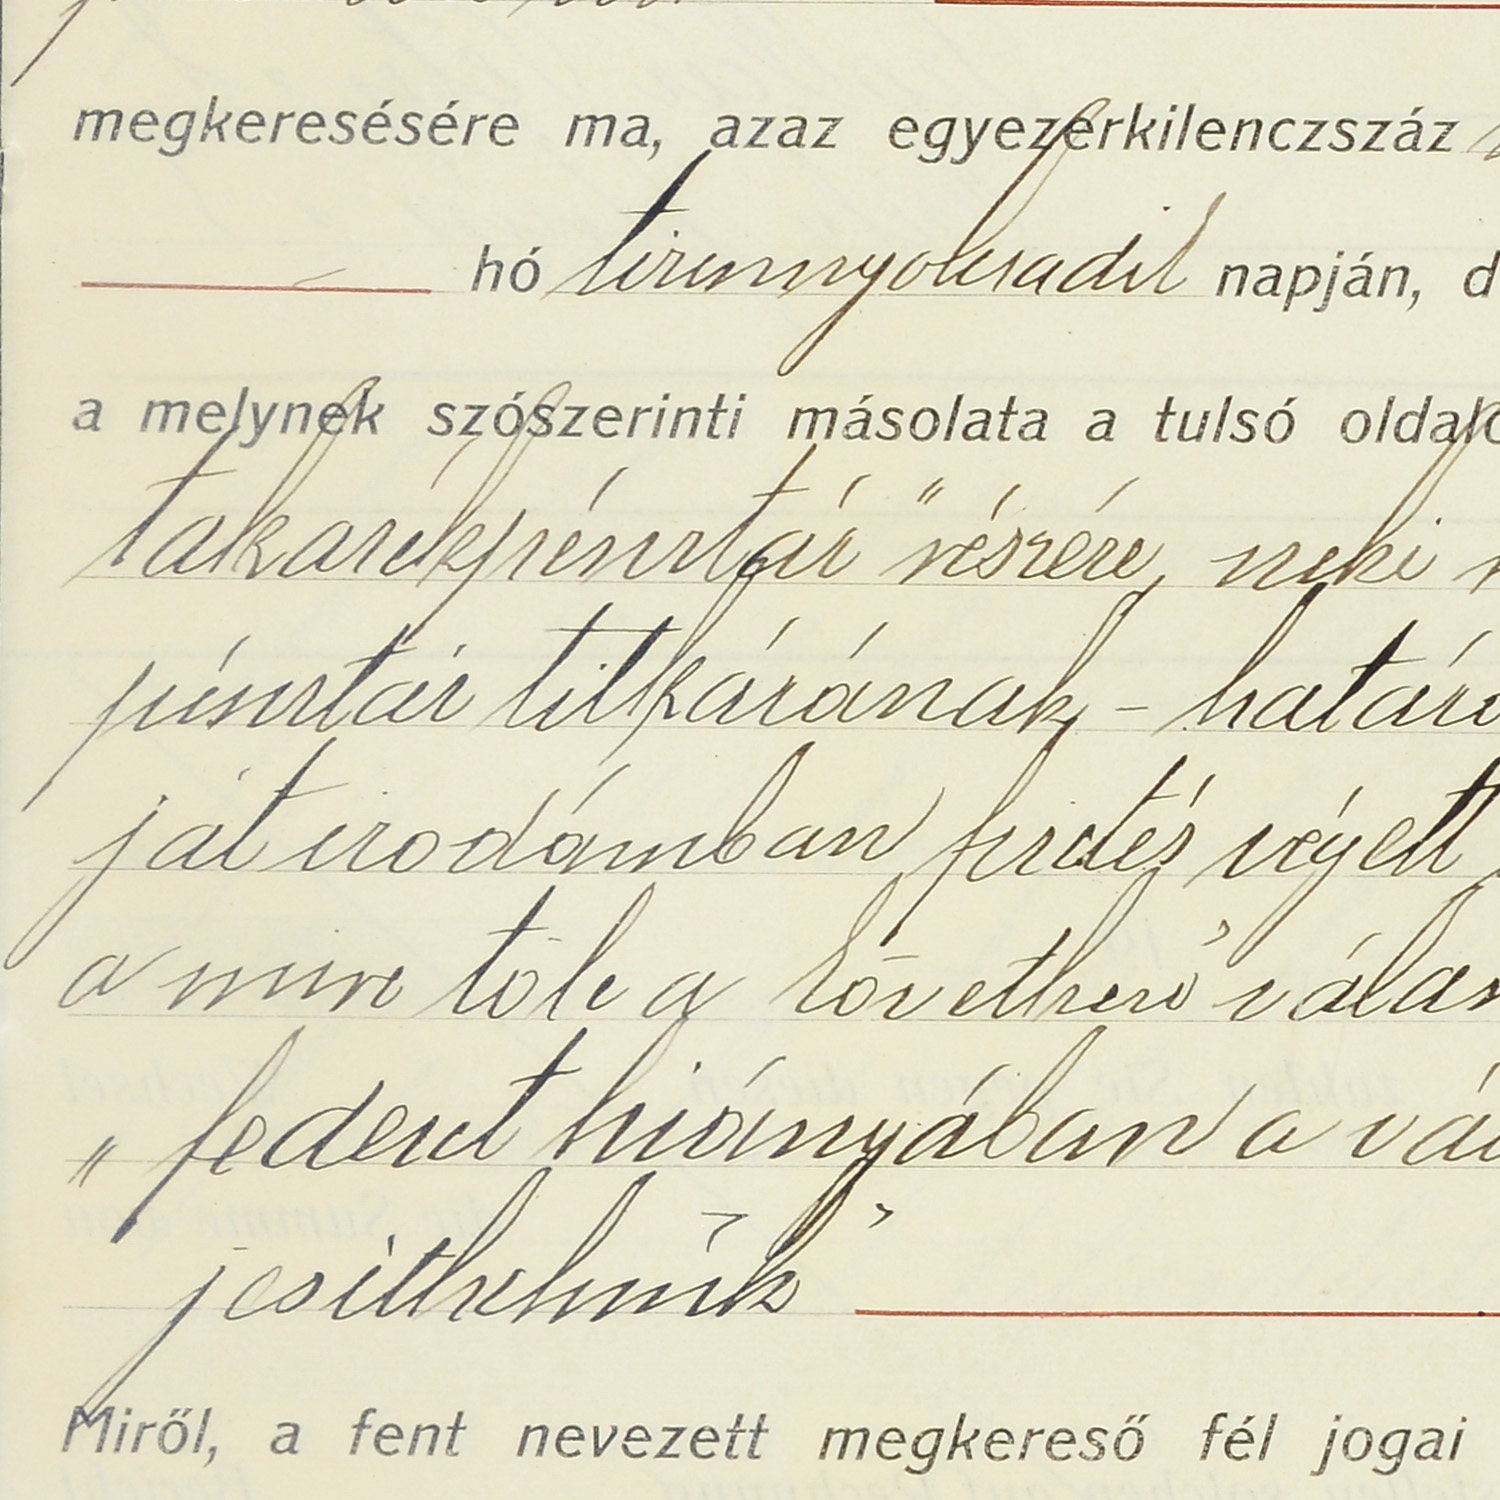 megkeresésére ma, azaz egyezerkilenczszáz
hó tizennyolcadik napján, d
a melynek szószerinti másolata a tulsó oldalo
takarékpénztár" részére, neki
pénztár titkárának – határi
ját irodámban fizetés végett
a mire tőle a következő válas
„ fedezet hiányában a vál
jesíthetünk"
Miről, a fent nevezett megkereső fél jogai